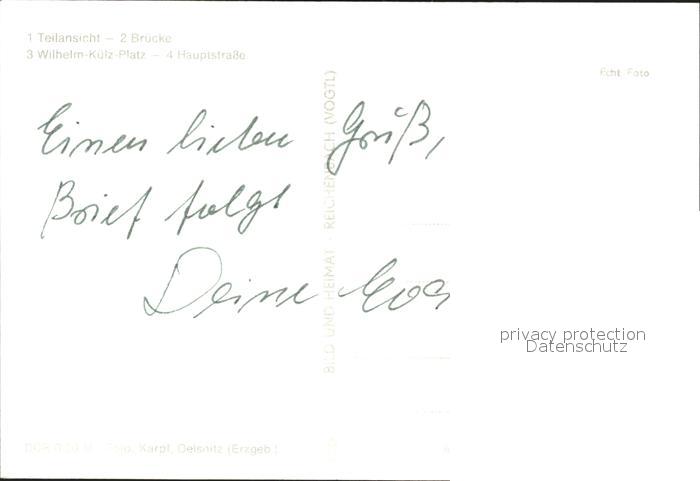 1 Teilansicht — 2 Brücke
3 Wilhelm-Külz-Platz — 4 Hauptstraße
Echt Foto
Einen lieben Gruß,
Brief folgt
Deine
BILD UND HEIMAT · REICHENBACH (VOGTL)
privacy protection
Datenschutz
Foto: Karpf, Oelsnitz (Erzgeb.)